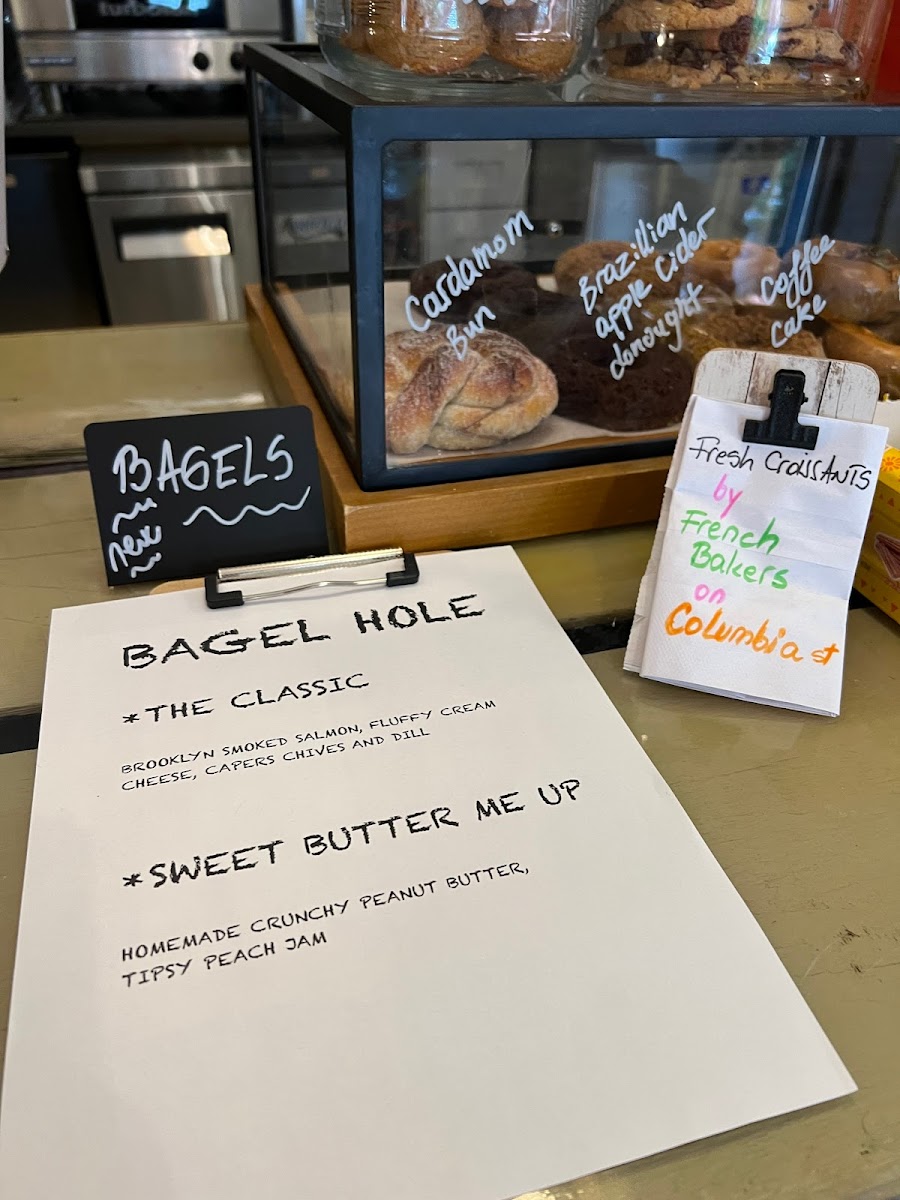 Cardamom
Bun
Brazillian
apple Cider
donought
Coffee
Cake
BAGELS
new
Fresh CroissANTS
by
French
Bakers
on
Columbia st
BAGEL HOLE
*THE CLASSIC
BROOKLYN SMOKED SALMON, FLUFFY CREAM
CHEESE, CAPERS CHIVES AND DILL
*SWEET BUTTER ME UP
HOMEMADE CRUNCHY PEANUT BUTTER,
TIPSY PEACH JAM